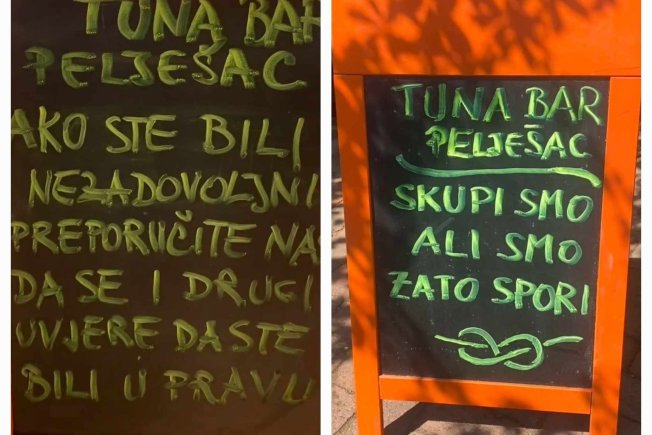 TUNA BAR
PELJEŠAC
AKO STE BILI
NEZADOVOLJNI
PREPORUČITE NAS
DA SE I DRUGI
UVJERE DA STE
BILI U PRAVU
TUNA BAR
PELJEŠAC
SKUPI SMO
ALI SMO
ZATO SPORI